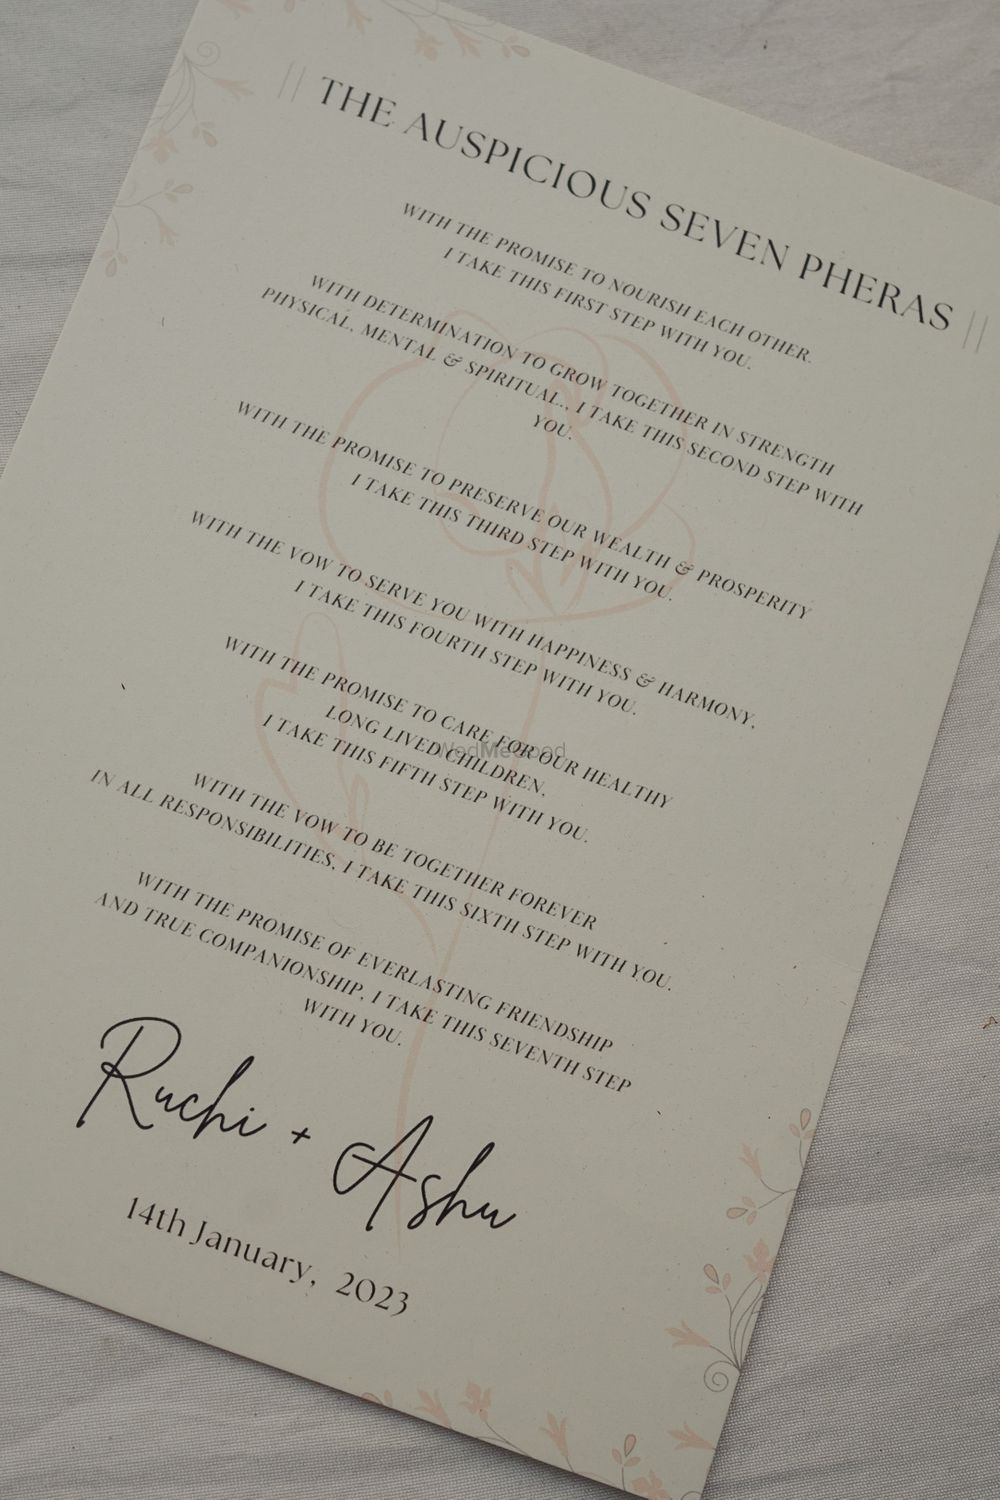 || THE AUSPICIOUS SEVEN PHERAS ||
WITH THE PROMISE TO NOURISH EACH OTHER.
I TAKE THIS FIRST STEP WITH YOU.
WITH DETERMINATION TO GROW TOGETHER IN STRENGTH
PHYSICAL, MENTAL & SPIRITUAL., I TAKE THIS SECOND STEP WITH
YOU.
WITH THE PROMISE TO PRESERVE OUR WEALTH & PROSPERITY
I TAKE THIS THIRD STEP WITH YOU.
WITH THE VOW TO SERVE YOU WITH HAPPINESS & HARMONY,
I TAKE THIS FOURTH STEP WITH YOU.
WITH THE PROMISE TO CARE FOR OUR HEALTHY
LONG LIVED CHILDREN,
I TAKE THIS FIFTH STEP WITH YOU.
WITH THE VOW TO BE TOGETHER FOREVER
IN ALL RESPONSIBILITIES, I TAKE THIS SIXTH STEP WITH YOU.
WITH THE PROMISE OF EVERLASTING FRIENDSHIP
AND TRUE COMPANIONSHIP, I TAKE THIS SEVENTH STEP
WITH YOU.
Ruchi + Ashu
14th January, 2023
WedMeGood